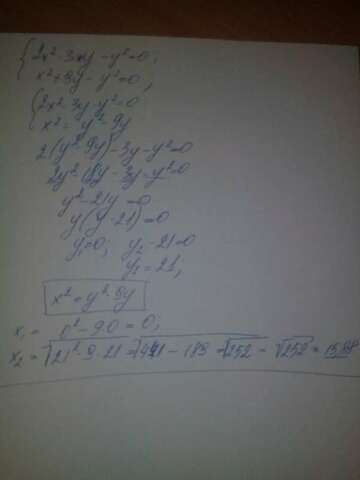 {2x²-3xy-y²=0;
x²+9y-y²=0,
{2x²-3y-y²=0
x²=y²-9y
2(y²-9y)-3y-y²=0
2y²-18y-3y-y²=0
y²-21y=0
y(y-21)=0
y₁=0; y₂-21=0
y₁=21;
x²=y²-9y
x₁= 0²-9·0=0;
x₂=√21²-9·21=√441-189=√252-√252=15,88